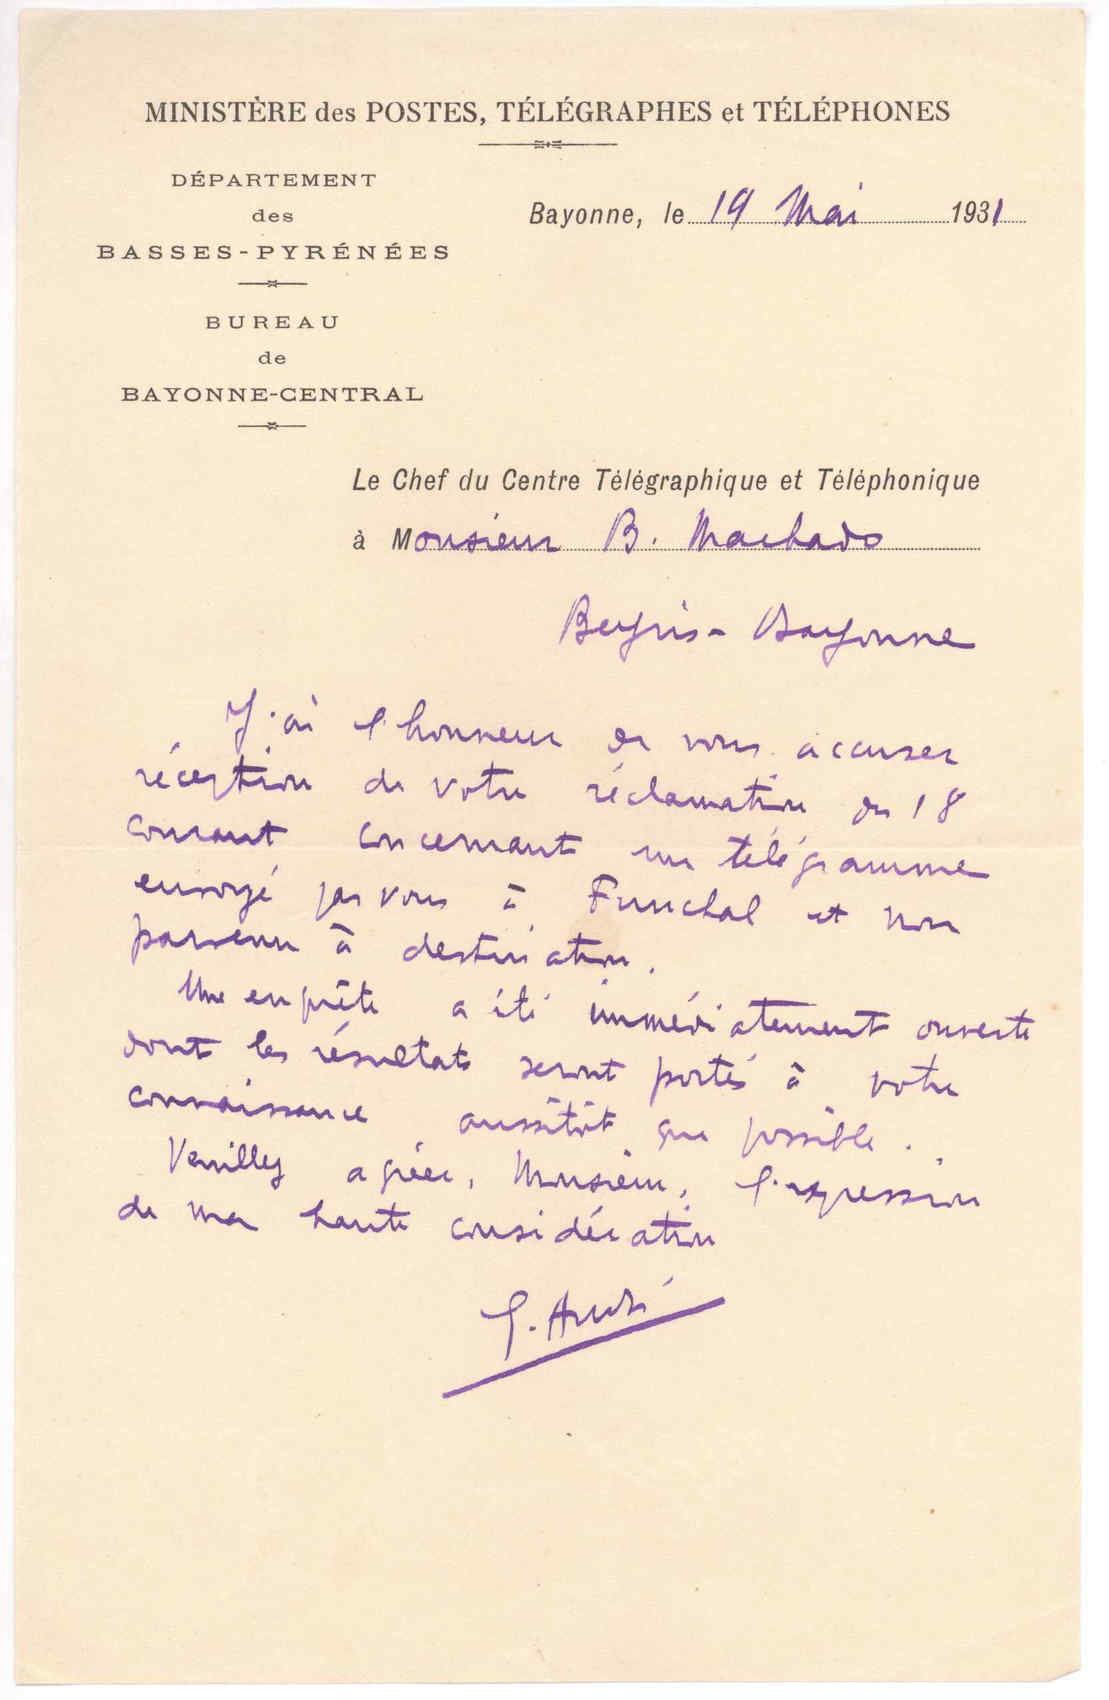 MINISTÈRE des POSTES, TÉLÉGRAPHES et TÉLÉPHONES
DÉPARTEMENT
des
BASSES-PYRÉNÉES
BUREAU
de
BAYONNE-CENTRAL
Bayonne, le 19 Mai 1931
Le Chef du Centre Télégraphique et Téléphonique
à Monsieur B. Machado
Beyris - Bayonne
J'ai l'honneur de vous accuser
réception de votre réclamation du 18
courant concernant un télégramme
envoyé par vous à Funchal et non
parvenu à destination.
Une enquête a été immédiatement ouverte
dont les résultats seront portés à votre
connaissance aussitôt que possible.
Veuillez agréer, Monsieur, l'expression
de ma haute considération